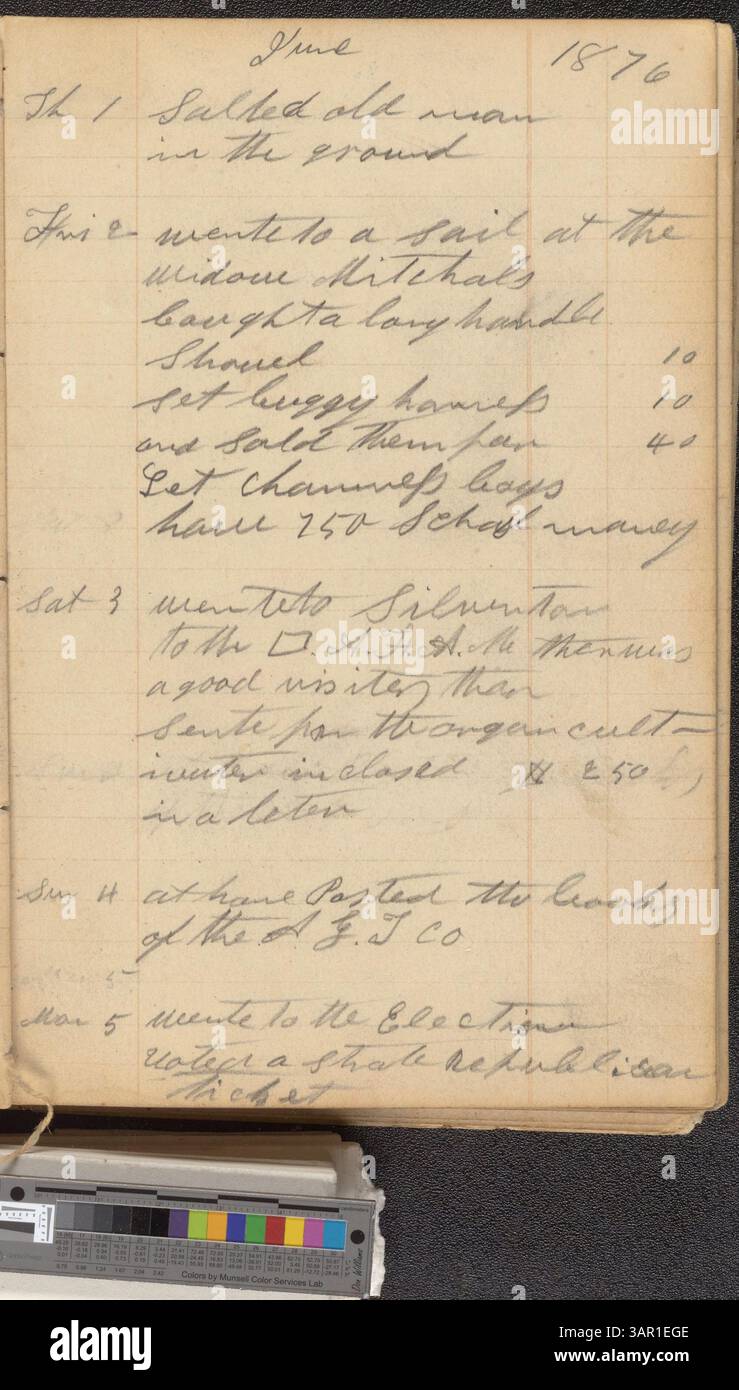 June 1876
Th 1 Salted old man
in the ground
Fri 2 wente to a Sail at the
widow Mitchals
bought a long handle
Shovel 10
Set buggy harness 10
and Sold them for 40
Let boys
have 250 School money
Sat 3 wente to Silverton
to the A. F. A. M ther was
a good visiters than
Sente for the organ cult-
ivater inclosed $ 250
in a leter
Sun 4 at home Posted the books
of the A G. T CO
5
Mon 5 wente to the Election
voted a Strate Republican
ticket
Colors by Munsell Color Services Lab
alamy
Image ID: 3AR1EGE
www.alamy.com